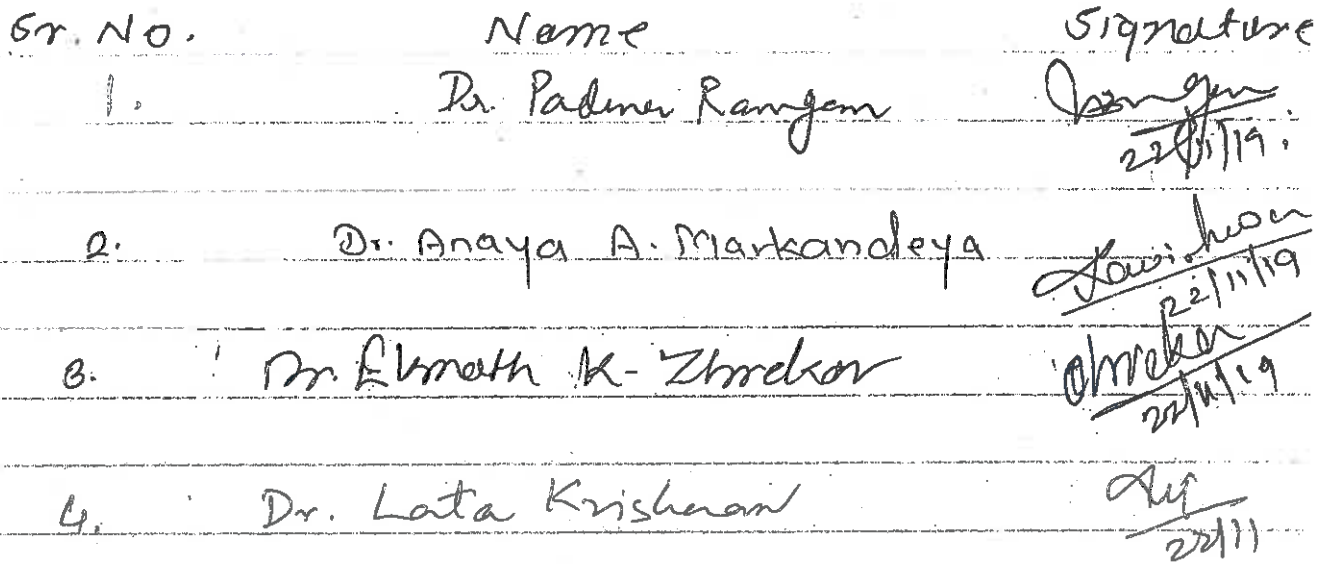 Sr. No. Name Signature
1. Dr. Padma Rangan
22/11/19.
2. Dr. Anaya A. Markandeya
22/11/19
3. Dr. Eknath K- Zhrekar
22/11/19
4. Dr. Lata Krishnan
22/11